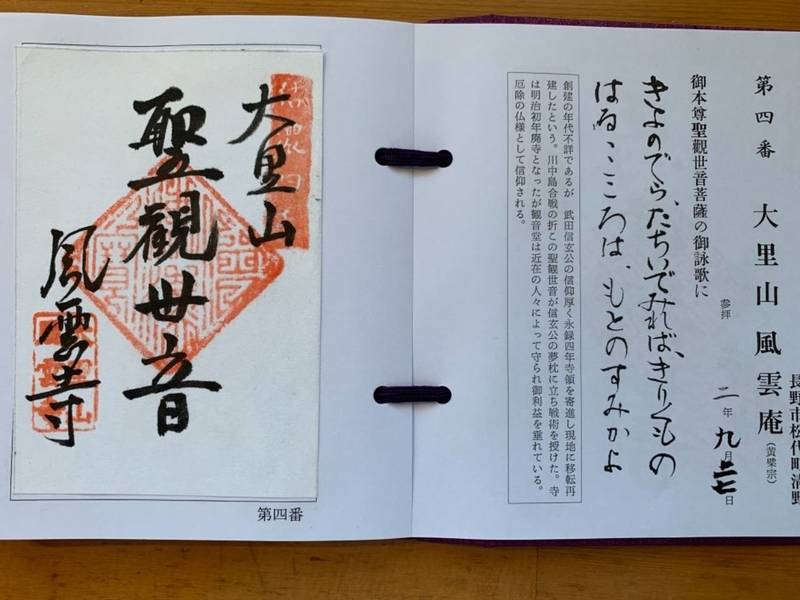 長野市松代町清野
第四番 大里山風雲庵（黄檗宗）
参拝 二年九月二七日
御本尊聖觀世音菩薩の御詠歌に
きよのでら、たちいでみれば、きりくもの
はるゝこころは、もとのすみかよ
創建の年代不詳であるが 武田信玄公の信仰厚く永録四年寺領を寄進し現地に移転再
建したという。川中島合戦の折この聖觀世音が信玄公の夢枕に立ち戦術を授けた。寺
は明治初年廃寺となったが観音堂は近在の人々によって守られ御利益を垂れている。
厄除の仏様として信仰される。
大里山
聖觀世音
風雲寺
第四番